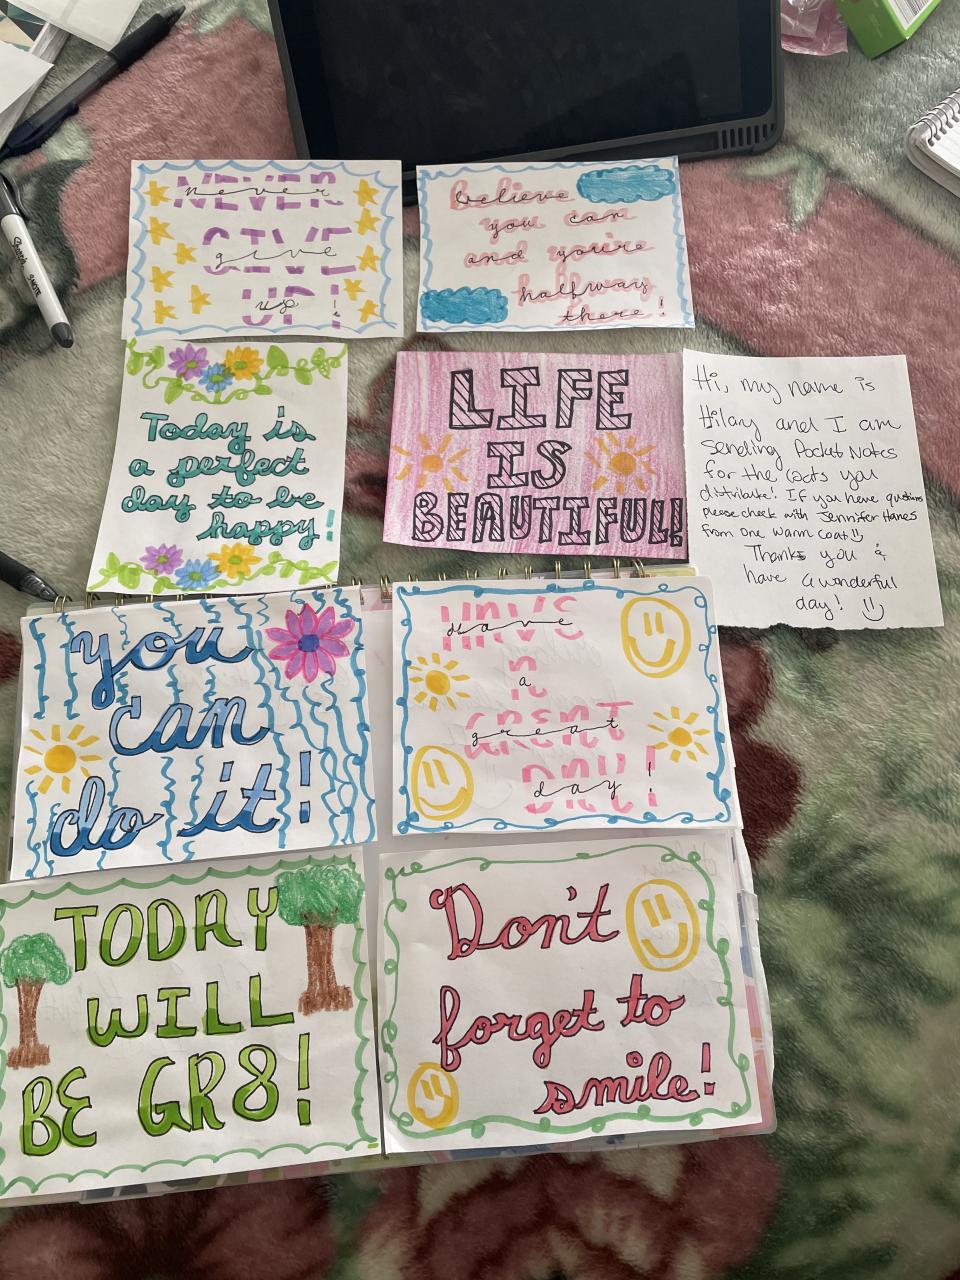 NEVER
never
GIVE
give
UP!
up!
believe
you can
and you're
halfway
there!
Today is
a perfect
day to be
happy!
LIFE
IS
BEAUTIFUL!
Hi, my name is
Hilary and I am
sending Pocket Notes
for the coats you
distribute! If you have questions
please check with Jennifer Hanes
from One Warm Coat!
Thanks you &
have a wonderful
day!
you
can
do it!
HAVE
Have
A
a
GREAT
great
DAY!
day!
TODAY
WILL
BE GR8!
Don't
forget to
smile!
Sharpie S-NOTE